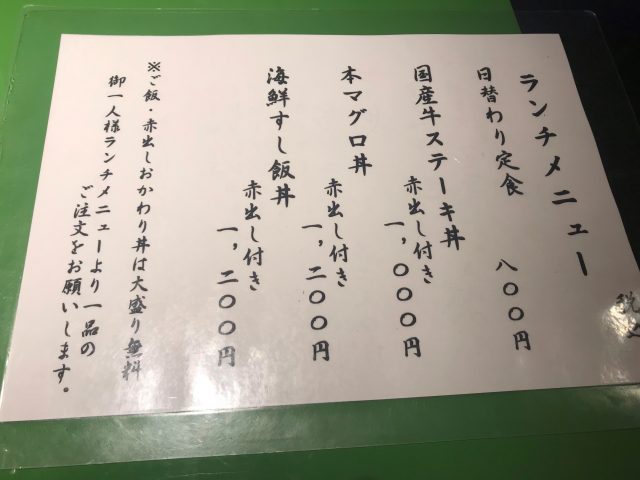 ランチメニュー
日替わり定食　八〇〇円
国産牛ステーキ丼
赤出し付き
一，〇〇〇円
本マグロ丼
赤出し付き
一，二〇〇円
海鮮すし飯丼
赤出し付き
一，二〇〇円
※ご飯・赤出しおかわり丼は大盛り無料
御一人様ランチメニューより一品の
ご注文をお願いします。